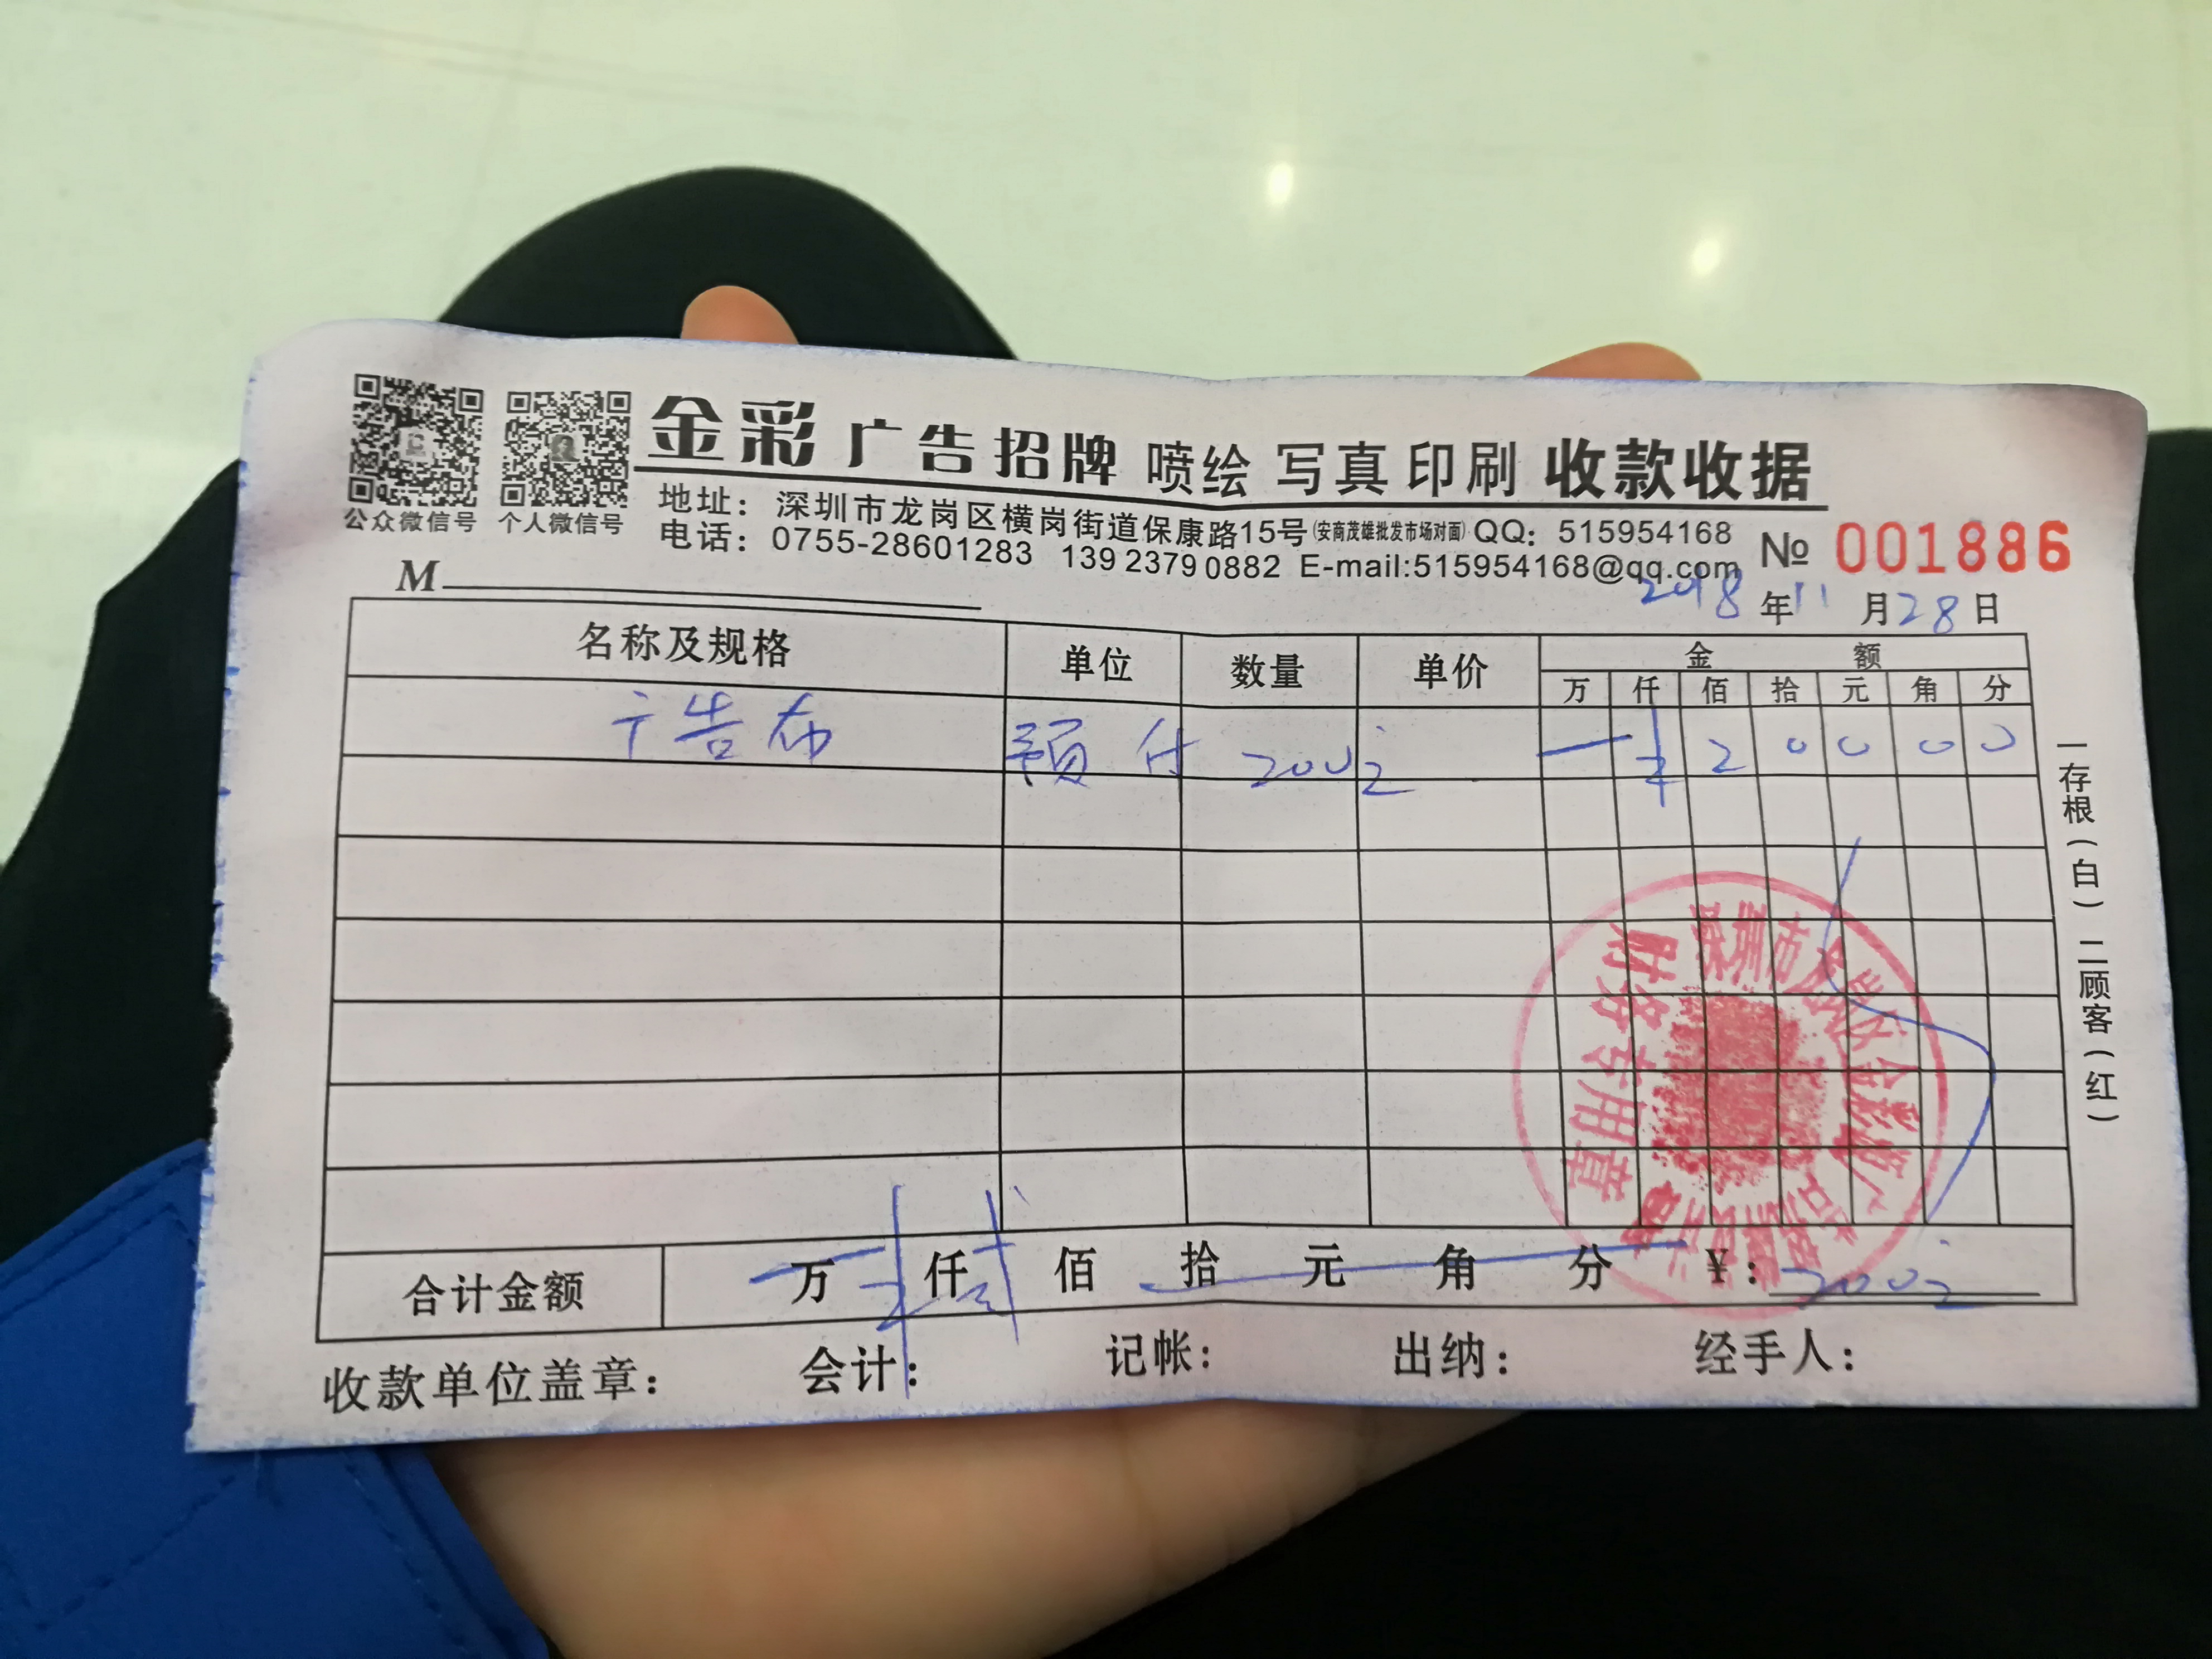 金彩 广告招牌 喷绘 写真 印刷 收款收据
公众微信号 个人微信号
地址：深圳市龙岗区横岗街道保康路15号(安商茂雄批发市场对面) QQ：515954168
电话：0755-28601283 13923790882 E-mail:515954168@qq.com
№ 001886
M
2018年11月28日
名称及规格 单位 数量 单价 金额
万 仟 佰 拾 元 角 分
广告布 预付 200元 ¥ 2 0 0 0 0
合计金额 万 仟 佰 拾 元 角 分 ¥：200元
收款单位盖章： 会计： 记帐： 出纳： 经手人：
一存根(白) 二顾客(红)
财务专用章